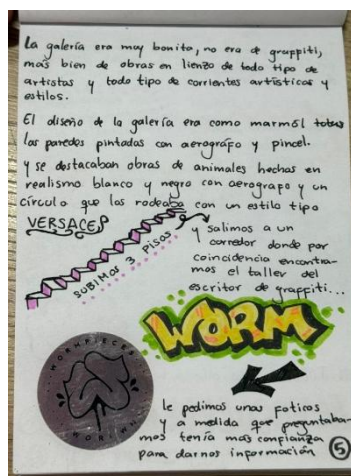 La galería era muy bonita, no era de graffiti,
más bien de obras en lienzo de todo tipo de
artistas y todo tipo de corrientes artísticas y
estilos.
El diseño de la galería era como marmól todas
las paredes pintadas con aerografo y pincel.
y se destacaban obras de animales hechas en
realismo blanco y negro con aerografo y un
círculo que los rodeaba con un estilo tipo
VERSACE
SUBIMOS 3 PISOS
y salimos a un
corredor donde por
coincidencia encontra-
mos el taller del
escritor de graffiti...
WORM
WORMPIECES
le pedimos unas foticos
y a medida que preguntaba-
mos tenía más confianza
para darnos información
5